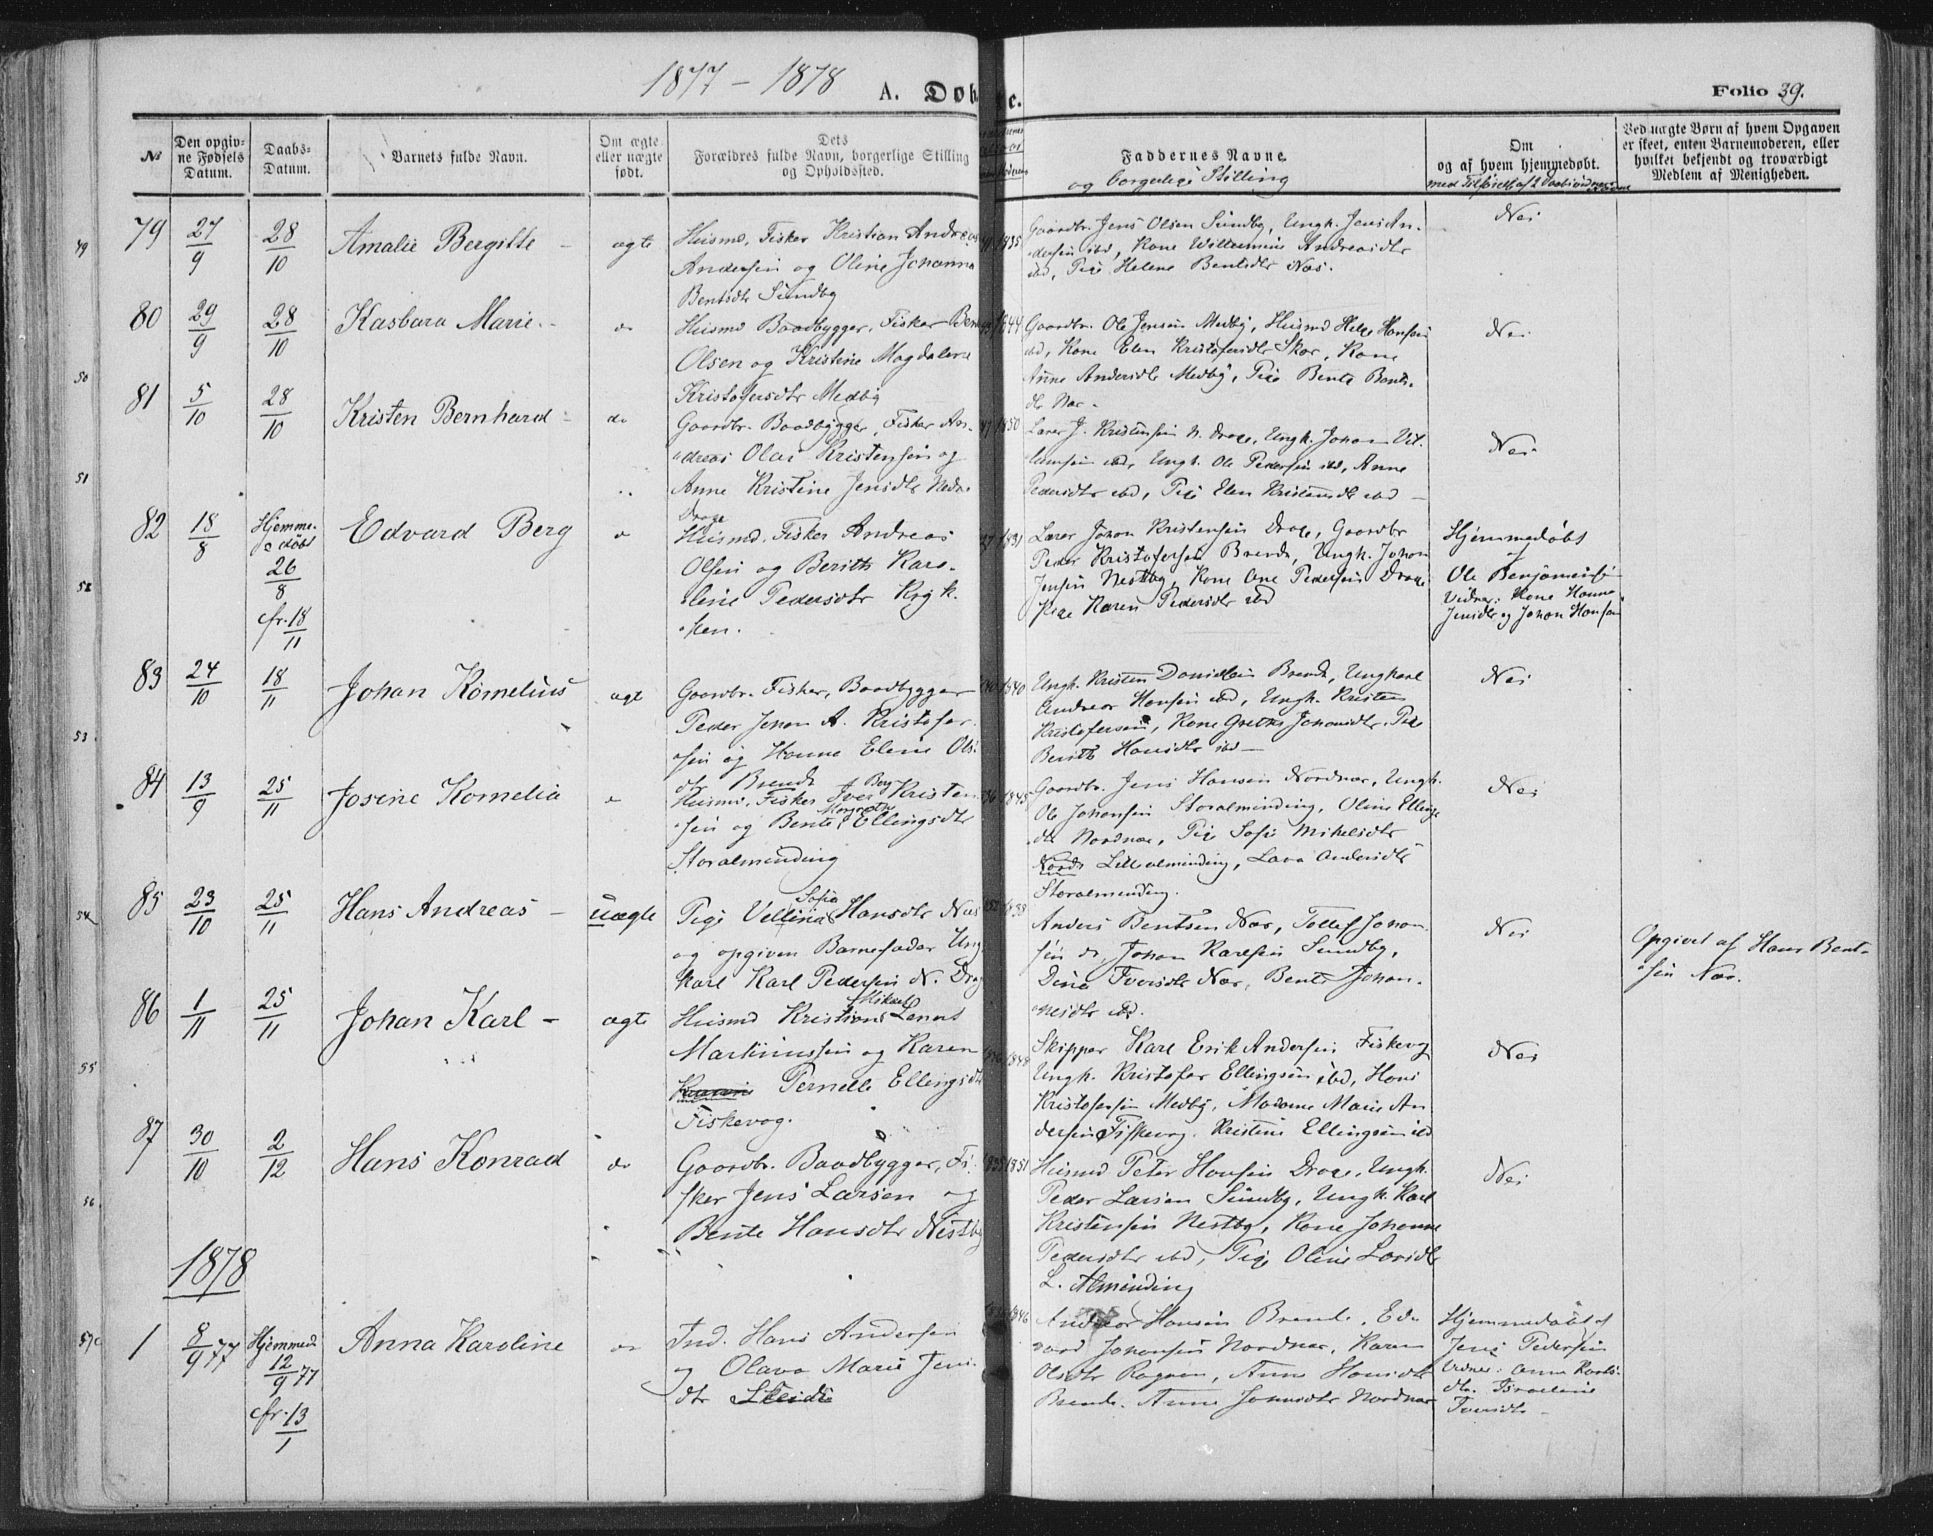 1877 - 1878
A. Dob
e.
Folio 39.
No
Den opgiv-
ne Fødsels
Datum.
Daabs-
Datum.
Barnets fulde Navn.
Om ægte
eller uægte
født.
Dets
Forældres fulde Navn, borgerlige Stilling
og Opholdssted.
Faddernes Navne
og borgerlige Stilling
Om
og af hvem hjemmedøbt.
med Tilførsel af 2 Daabsvidner
Ved uægte Børn af hvem Opgaven
er skeet, enten Barnemoderen, eller
hvilket bekjendt og troværdigt
Medlem af Menigheden.
79 27/9 28/10 Amalie Bergitte - ægte
Huusmd. Fisker Kristian Andreas
Andersen og Oline Johanna
Bentsdtr Sundby
1835
Gaardbr. Jens Olsen Sundby, Ungk. Jens An-
dersen ibd, Kone Willumine Andreasdtr
ibd, Pige Helene Bentsdtr Næs.
Nei
80 29/9 28/10 Kasbara Marie - do
Huusmd Baadbygger, Fisker Bent
Olsen og Kristine Magdalene
Kristofersdtr Medby
1844
Gaardbr. Ole Jensen Medby, Huusmd Helge Hansen
ibd, Kone Elen Kristofersdtr Skar, Kone
Anne Andersdtr Medby, Pige Bente Bents-
dtr Næs -
Nei
81 5/10 28/10 Kristen Bernhard - do
Gaardbr. Baadbygger, Fisker An-
dreas Olai Kristensen og
Anne Kristine Jensdtr Nedre
Drage
1850
Lærer J. Kristensen N. Drage, Ungk. Johan Vil-
lumsen ibd, Ungk. Ole Pedersen ibd, Anne
Pedersdtr ibd, Pige Elen Kristensdtr ibd -
Nei
82 18/8 Hjemme-
døbt
26/8
cfr. 18/11
Edvard Berg
Huusmd. Fisker Andreas
Olsen og Berith Karo-
line Pedersdtr Røgk-
sken.
1831
Lærer Johan Kristensen Drage, Gaardbr
Peder Kristofersen Brende, Ungk. Johan
Jensen Nestby, Kone Ane Pedersen Drage
Pige Karen Pedersdtr ibd
Hjemmedøbt
af
Ole Benjaminsen
Vidner: Kone Hanna
Jensdtr og Johan Hansen
83 24/10 18/11 Johan Kornelius ægt
Gaardbr. Fisker, Baadbygger
Peder Johan A. Kristofer-
sen og Hanna Eline Ols-
dtr Brende
1840
Ungk. Kristen Danielsen Brende, Ungkarl
Andreas Hansen ibd, Ungk. Kristen
Kristofersen, Kone Grethe Johansdtr. Pige
Berith Hansdtr ibd -
Nei
84 13/9 25/11 Josine Kornelia
Huusmd. Fisker Iver Berg Kristen-
sen og Bente Margrethe Ellingsdtr
Storalmending
1845
Gaardbr. Jens Hansen Nordnæs, Ungk.
Ole Johansen Storalminding, Oline Ellings-
dtr Nordnæs, Pige Sofie Mikelsdtr
Lillealminding, Lava Andersdtr
Storalmending.
Nei
85 23/10 25/11 Hans Andreas - uægte
Pige Vellina Sofia Hansdtr Næs
og opgiven Barnefader Ung-
karl Karl Pedersen N. Drag
Anders Bentsen Næs, Tollef Johan-
sen do, Johan Karlsen Sundby,
Dina Iversdtr Næs, Bente Johan-
nesdtr ibd.
Nei
Opgivet af Hans Bent-
sen Næs.
86 1/11 25/11 Johan Karl - ægte
Huusmd Kristian Mikael Lennert
Martinussen og Karen
Pernelle Ellingsdtr
Fiskevog.
1848
Skipper Karl Erik Andersen Fiskevog
Ungk. Kristofer Ellingsen ibd, Hans
Kristofersen Medby, Madame Marie An-
dersen Fiskevog. Kristine Ellingsen ibd
Nei
87 30/10 2/12 Hans Konrad do
Gaardbr. Baadbygger, Fi-
sker Jens Larsen og
Bente Hansdtr Nestby
1835 1851
Huusmd Peter Hansen Drage, Ungk.
Peder Larsen Sundby, Ungk. Karl
Kristensen Nestby, Kone Johanne
Pedersdtr ibd, Pige Oline Larsdtr
L. Alminding
Nei
1878
1 8/9 77 Hjemmed
12/9 77
cfr. 13/1
Anna Karoline
Ind. Hans Andersen
og Olava Marie Jens-
dtr Skeidi
1846
Andreas Hansen Brende, Ed-
vard Johansen Nordnæs, Karen
Olsdtr Rognan, Anne Hansdtr
Brende. Anne Jonsdtr Nordnæs
Hjemmedøbt af
Jens Pedersen
Vidner: Anna Karls-
dtr. Israeline
Iversdtr -
49
50
51
52
53
54
55
56
57